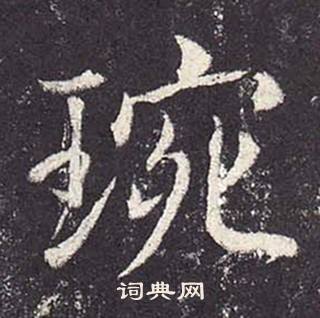 琬
词典网